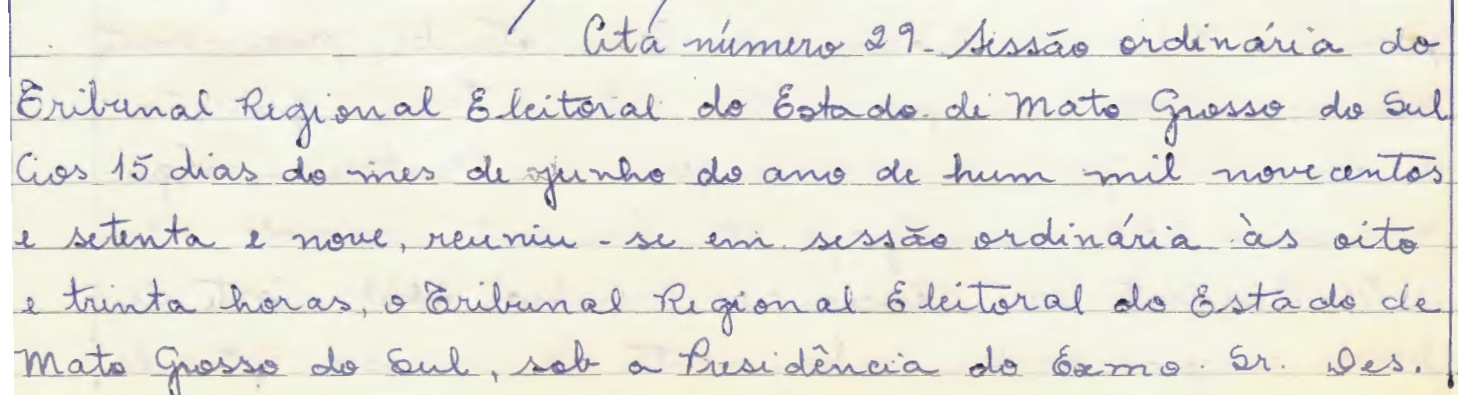 Ata número 29. Sessão ordinária do
Tribunal Regional Eleitoral do Estado de Mato Grosso do Sul
Aos 15 dias do mes de junho do ano de hum mil novecentos
e setenta e nove, reuniu-se em sessão ordinária às oito
e trinta horas, o Tribunal Regional Eleitoral do Estado de
Mato Grosso do Sul, sob a Presidência do Exmo. Sr. Des.